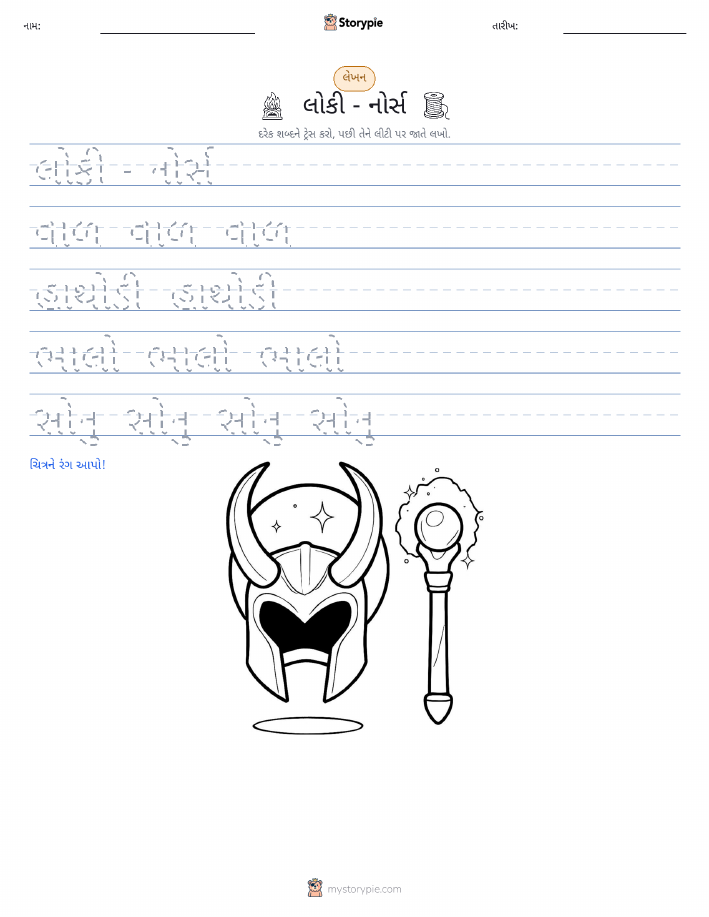 નામ:
Storypie
તારીખ:
લેખન
લોકી - નોર્સ
દરેક શબ્દને ટ્રેસ કરો, પછી તેને લીટી પર જાતે લખો.
લોકી - નોર્સ
વાળ વાળ વાળ
હાથોડી હાથોડી
ભાલો ભાલો ભાલો
સોનુ સોનુ સોનુ સોનુ
ચિત્રને રંગ આપો!
mystorypie.com